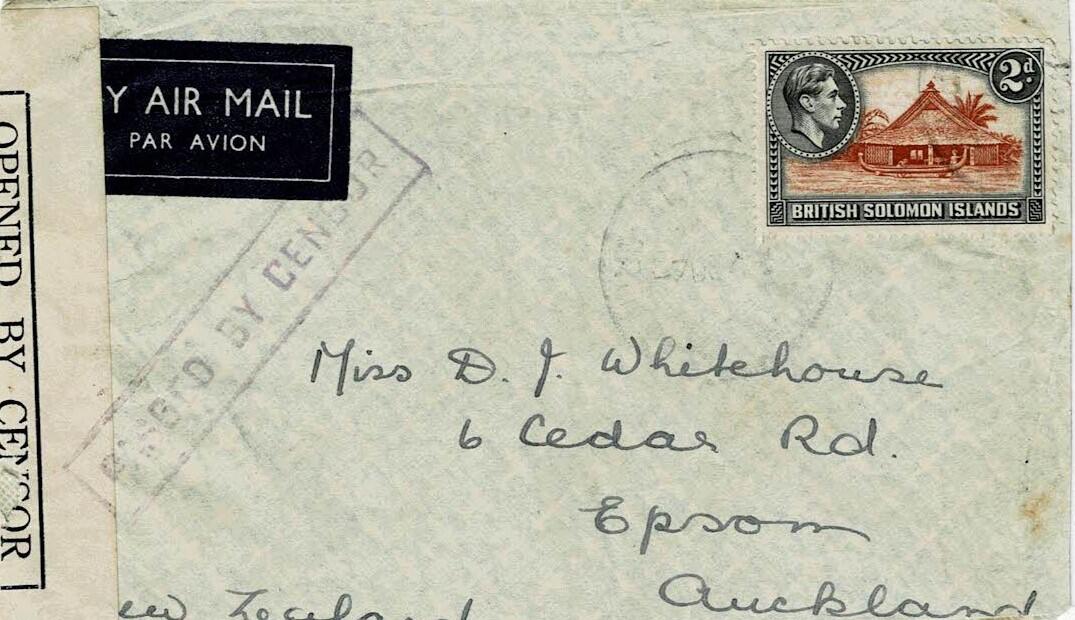 Y AIR MAIL
PAR AVION
2d.
BRITISH SOLOMON ISLANDS
OPENED BY CENSOR
PASSED BY CENSOR
Miss D. J. Whitehouse
6 Cedar Rd.
Epsom
Auckland
ew Zealand